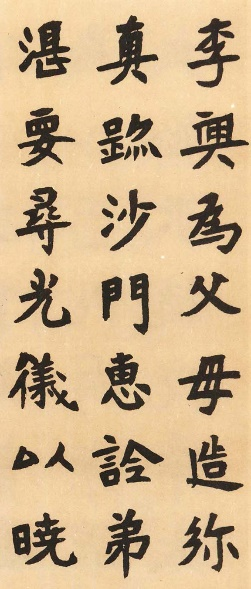 李興為父母造弥
真沙門惠弟
湛要尋光儀以曉